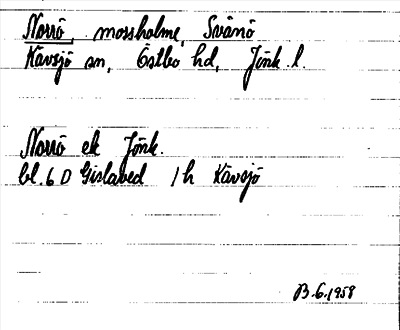 Norrö, mossholme, Svänö
Kävsjö sn, Östbo hd, Jönk. l.
Norrö ek Jönk.
bl. 6 D Gislaved 1 h Kävsjö
B. 6. 1958